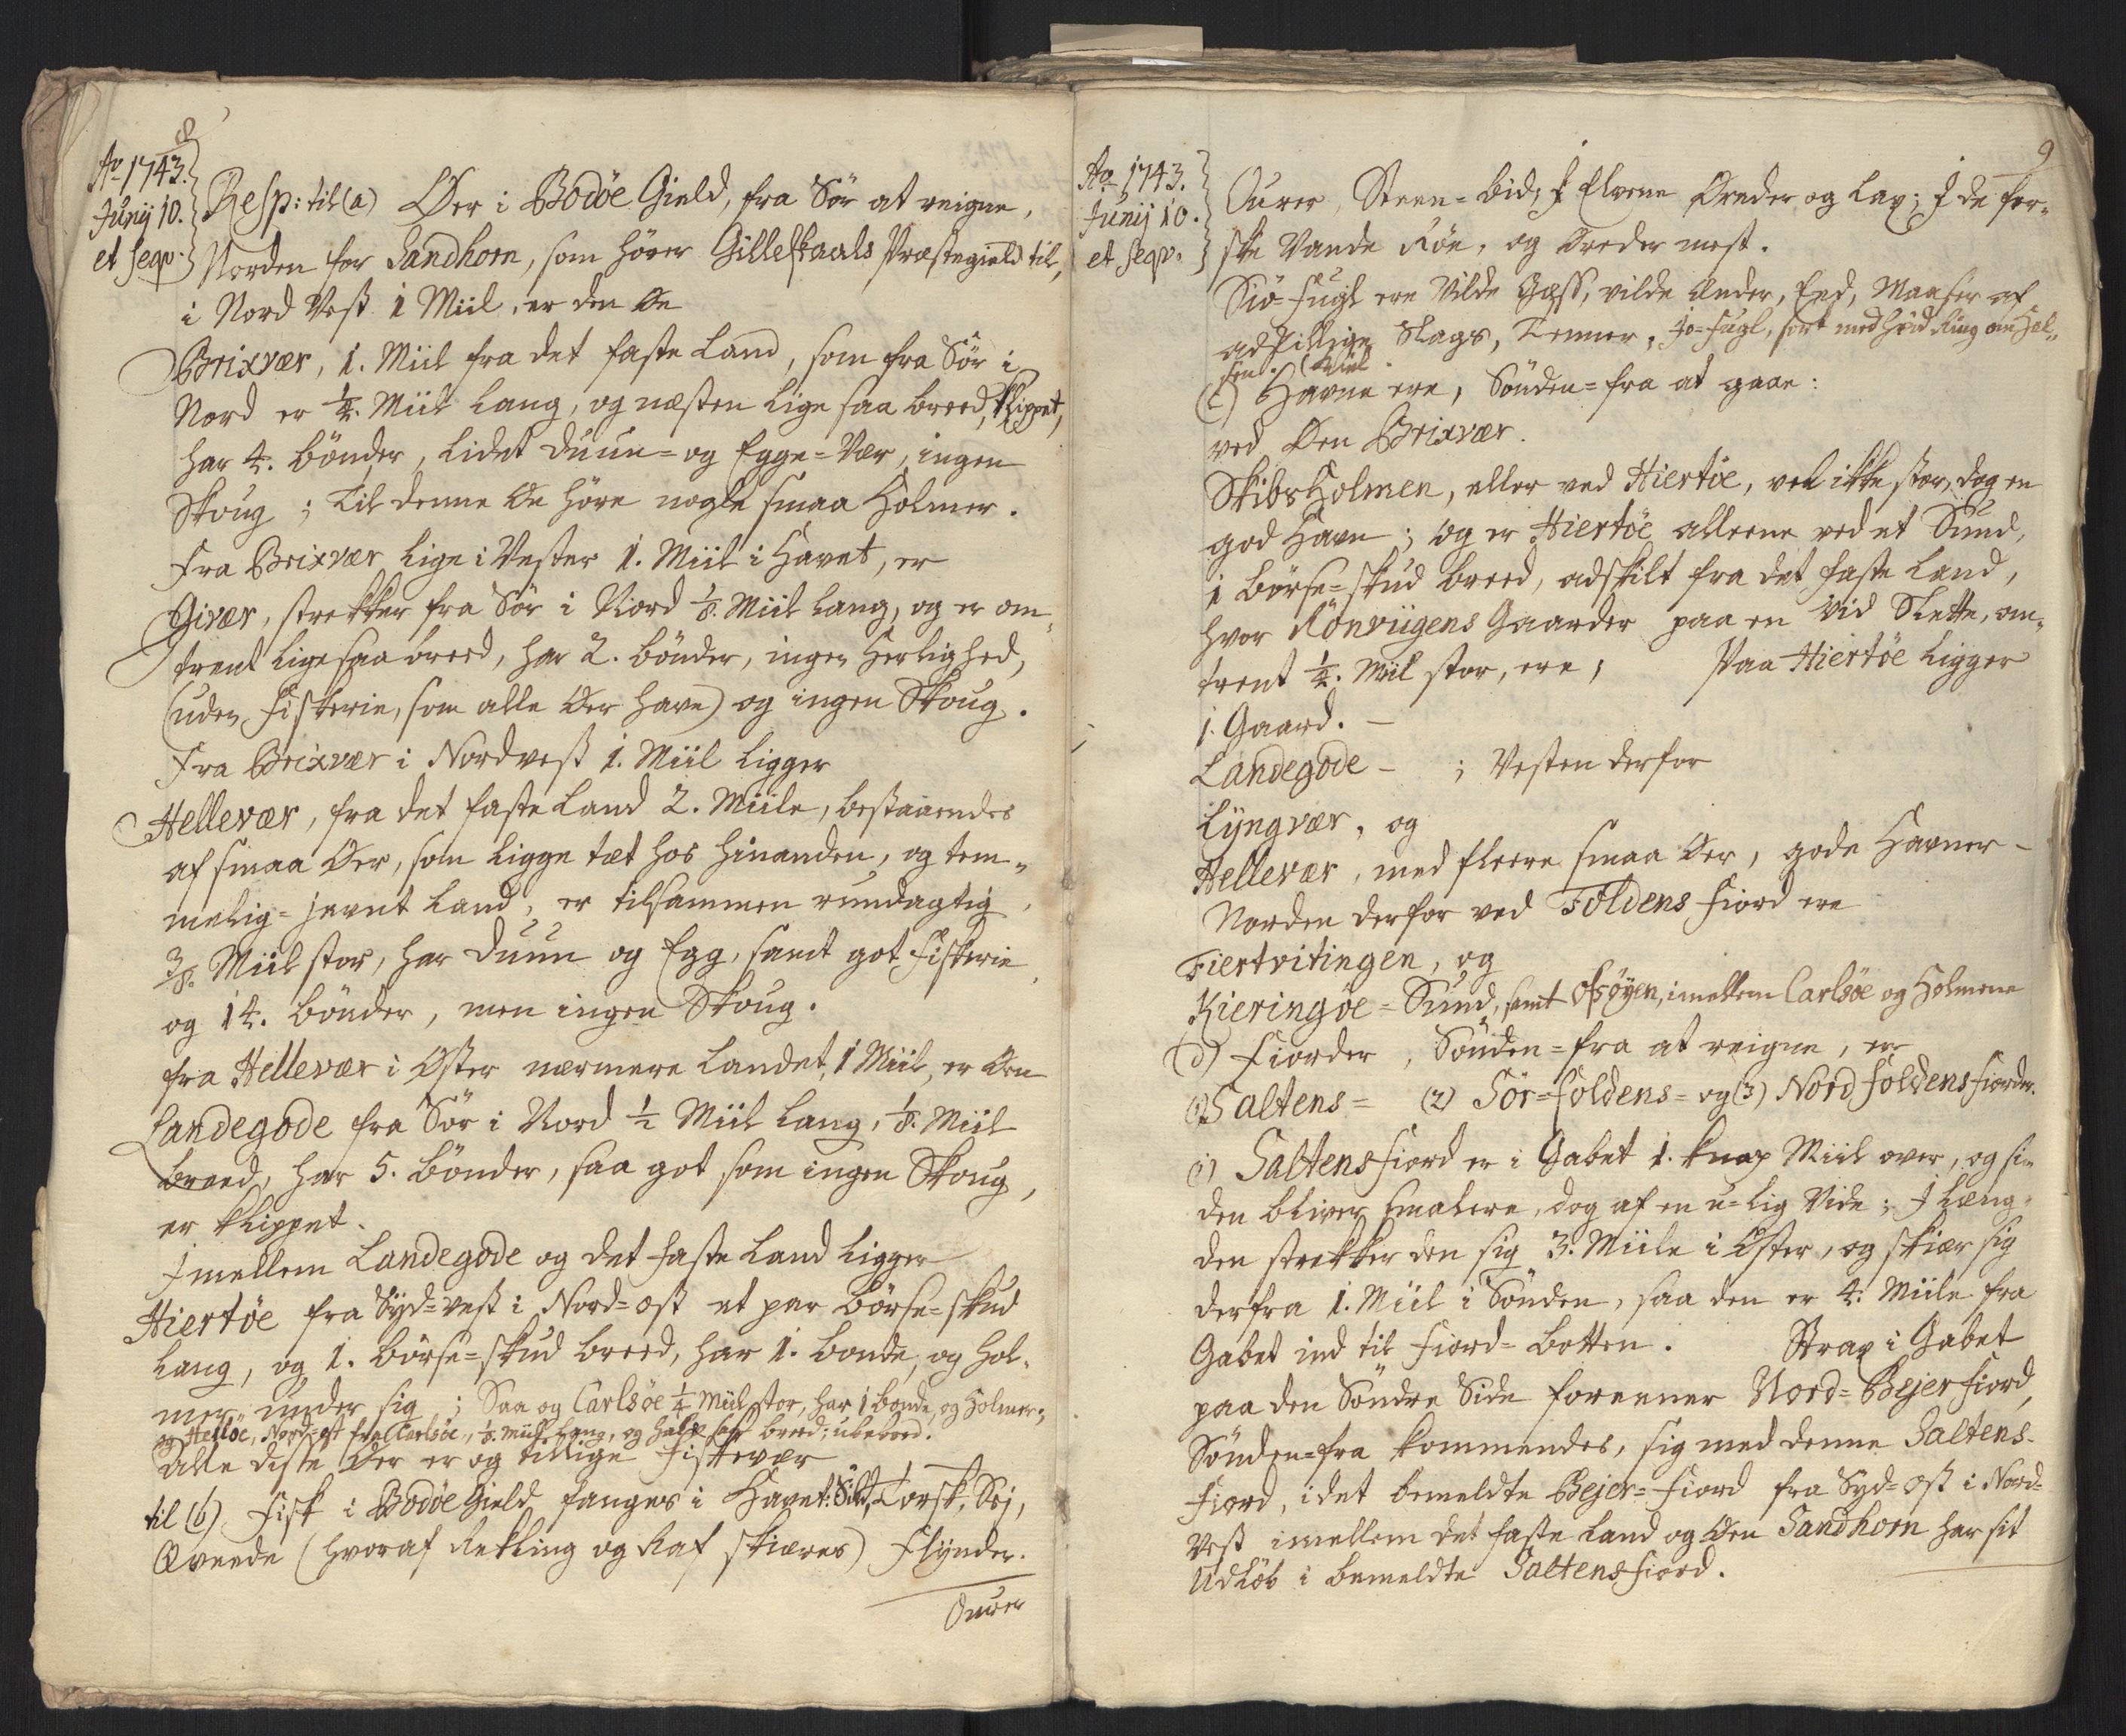 8
Ao 1743.
Junij 10.
et seqv.
Resp: til (a) Öer i Bodöe Gield, fra Sör at reigne,
Norden for Sandhorn, som hörer Gilleskaals Præstegield til,
i Nord Vest 1 Miil, er den Öe
Brixvær, 1. Miil fra det faste Land, som fra Sör i
Nord er 1/4. Miil lang, og næsten lige saa breed, klippet,
har 4. bönder, lidet Duun- og Egge-Vær, ingen
Skoug; Til denne Öe höre nogle smaa Holmer.
Fra Brixvær lige i Vester 1. Miil i Havet, er
Givær, strekker fra Sör i Nord 1/8. Miil lang, og er om-
trent lige saa breed, har 2. bönder, ingen Herlighed,
(uden Fiskerie, som alle Öer have) og ingen Skoug.
Fra Brixvær i Nordvest 1. Miil ligger
Hellevær, fra det faste Land 2. Miile, bestaaendes
af smaa Öer, som ligge tæt hos hinanden, og tem-
melig-jevnt Land, er tilsammen rundagtig
3/8. Miil stor, har Duun og Egg, samt got Fiskerie,
og 14. bönder, men ingen Skoug.
fra Hellevær i Öster nærmere Landet, 1 Miil, er Öen
Landegode fra Sör i Nord 1/2 Miil lang, 1/8. Miil
breed, har 5. bönder, saa got som ingen Skoug,
er klippet.
Imellem Landegode og det faste Land ligger
Hiertöe fra Syd-vest i Nord-ost et par börse-skud
lang, og 1. börse-skud breed, har 1. bonde, og Hol-
mer under sig; Saa og Carlsöe 1/4 Miil stor, har 1 bonde, og Holmer;
og Hellöe, Nord-ost fra Carlsöe, 1/8. Miil lang, og halv saa breed; ubeboed.
Alle disse Öer er og tillige Fiskevær
til (b) Fisk i Bodöe Gield fanges i Havet: Sild, Torsk, Sej,
Qveede (hvoraf Rekling og Raf skiæres) Flynder.
Ourer
9
Ao 1743.
Junij 10.
et seqv.
Ourer, Steen-bid, I Elvene Öreder og Lax; I de fer-
ske Vande Röe, og Öreder mest.
Siö-fugl ere Vilde Gæss, vilde Ænder, End, Maaser af
adskillige Slags, Tenner, Jo-fugl, sort med hvid Ring om Hal-
sen.
(c) Havne ere, Sönden-fra at gaae:
ved Öen Brixvær.
Skibs Holmen, eller ved Hiertöe, vel ikke stor, dog en
god Havn; og er Hiertöe alleene ved et Sund,
1 börse-skud breed, adskilt fra det faste Land,
hvor Rönviigens Gaarder paa en Vid Slette, om-
trent 1/4. Miil stor, ere; Paa Hiertöe ligger
1. Gaard. –
Landegode – ; Vesten derfor
Lyngvær, og
Hellevær, med fleere smaa Öer, gode Havner –
Norden derfor ved Foldens Fiord ere
Fiertvitingen, og
Kieringöe-Sund, samt Ofsöyen, imellem Carlsöe og Holmene
d) Fiorder, Sönden-fra at reigne, ere
(1) Saltens- (2) Sör-foldens- og (3) Nord foldens Fiorder.
(1) Saltens Fiord er i Gabet 1. knap Miil over, og si-
den bliver smalere, dog af en u-lig Vide; I Læng-
den strekker den sig 3. Miile i Öster, og skiær sig
derfra 1. Miil i Sönden, saa den er 4. Miile fra
Gabet ind til Fiord-botten. Strax i Gabet
paa den Söndre Side foreener Nord-Bejerfiord,
Sönden-fra kommendes, sig med denne Saltens-
Fiord, idet bemeldte Bejer-Fiord fra Syd-ost i Nord-
Vest imellem det faste Land og Öen Sandhorn har sit
Udlöb i bemeldte Saltens Fiord.